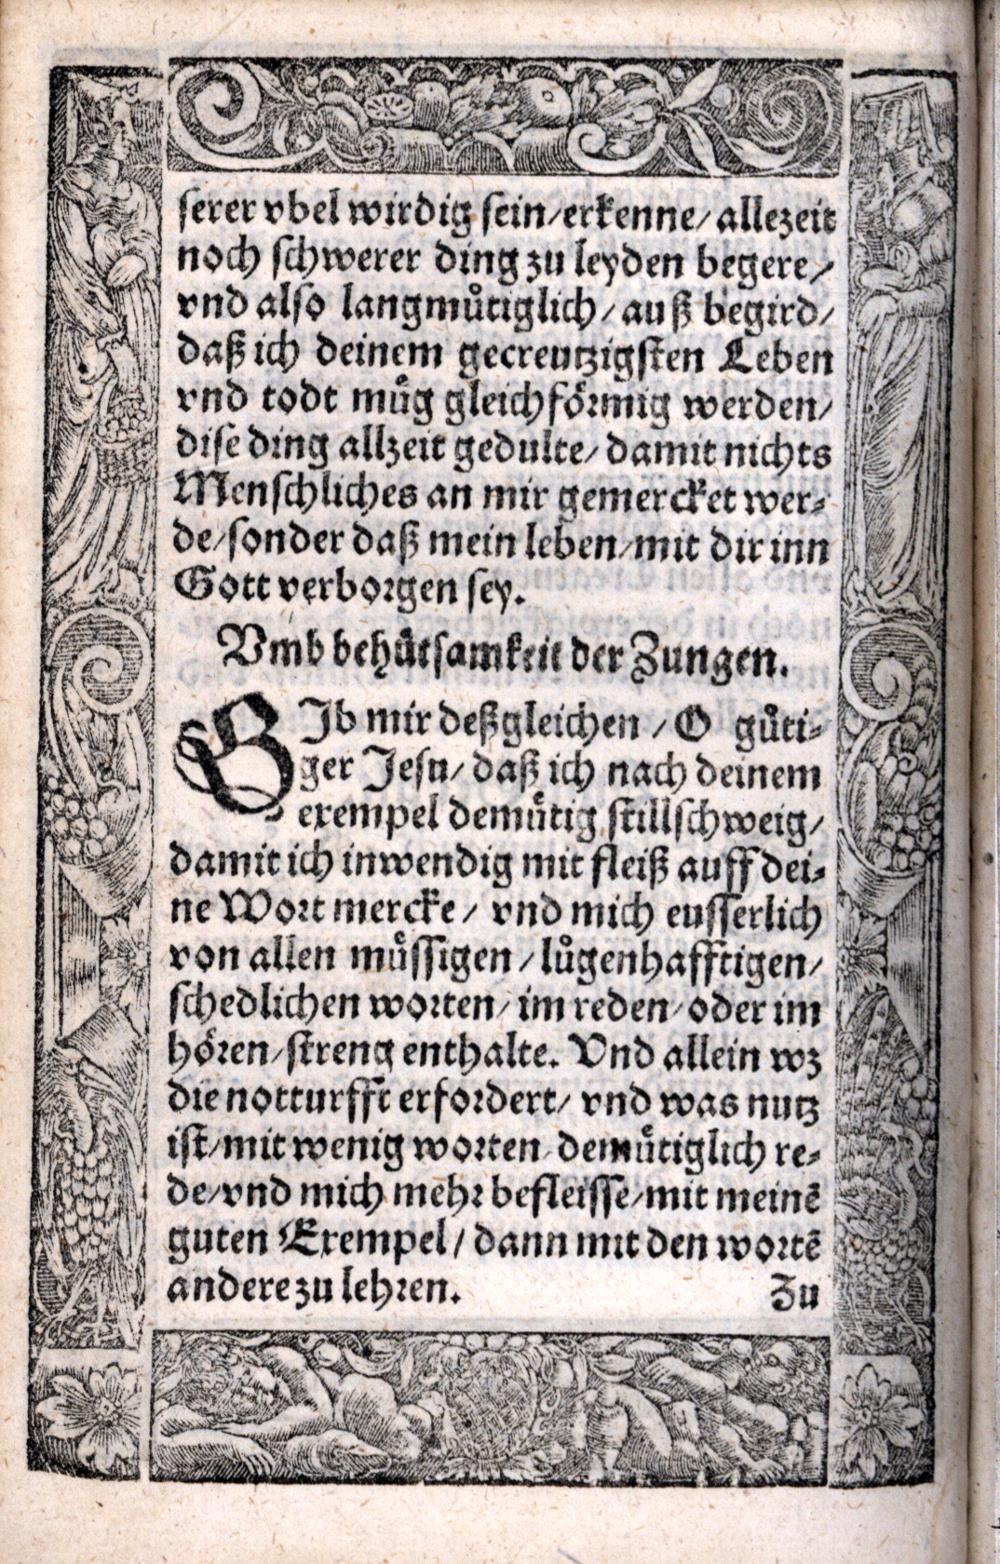 serer vbel wirdig sein/erkenne/allezeit
noch schwerer ding zu leyden begere/
vnd also langmuͤtiglich/auß begird/
daß ich deinem gecreutzigsten Leben
vnd todt muͤg gleichfoͤrmig werden/
dise ding allzeit gedulte/damit nichts
Menschliches an mir gemercket wer⸗
de/sonder daß mein leben/mit dir inn
Gott verborgen sey.
Vmb behuͤtsamkeit der Zungen.
GIb mir deßgleichen/O guͤti⸗
ger Jesu/daß ich nach deinem
exempel demuͤtig stillschweig/
damit ich inwendig mit fleiß auff dei⸗
ne Wort mercke/vnd mich eusserlich
von allen muͤssigen/luͤgenhafftigen/
schedlichen worten/im reden/oder im
hoͤren/streng enthalte. Vnd allein wz
die notturfft erfordert/vnd was nutz
ist/mit wenig worten demuͤtiglich re⸗
de/vnd mich mehr befleisse/mit meinẽ
guten Exempel/dann mit den wortẽ
andere zu lehren. Zu